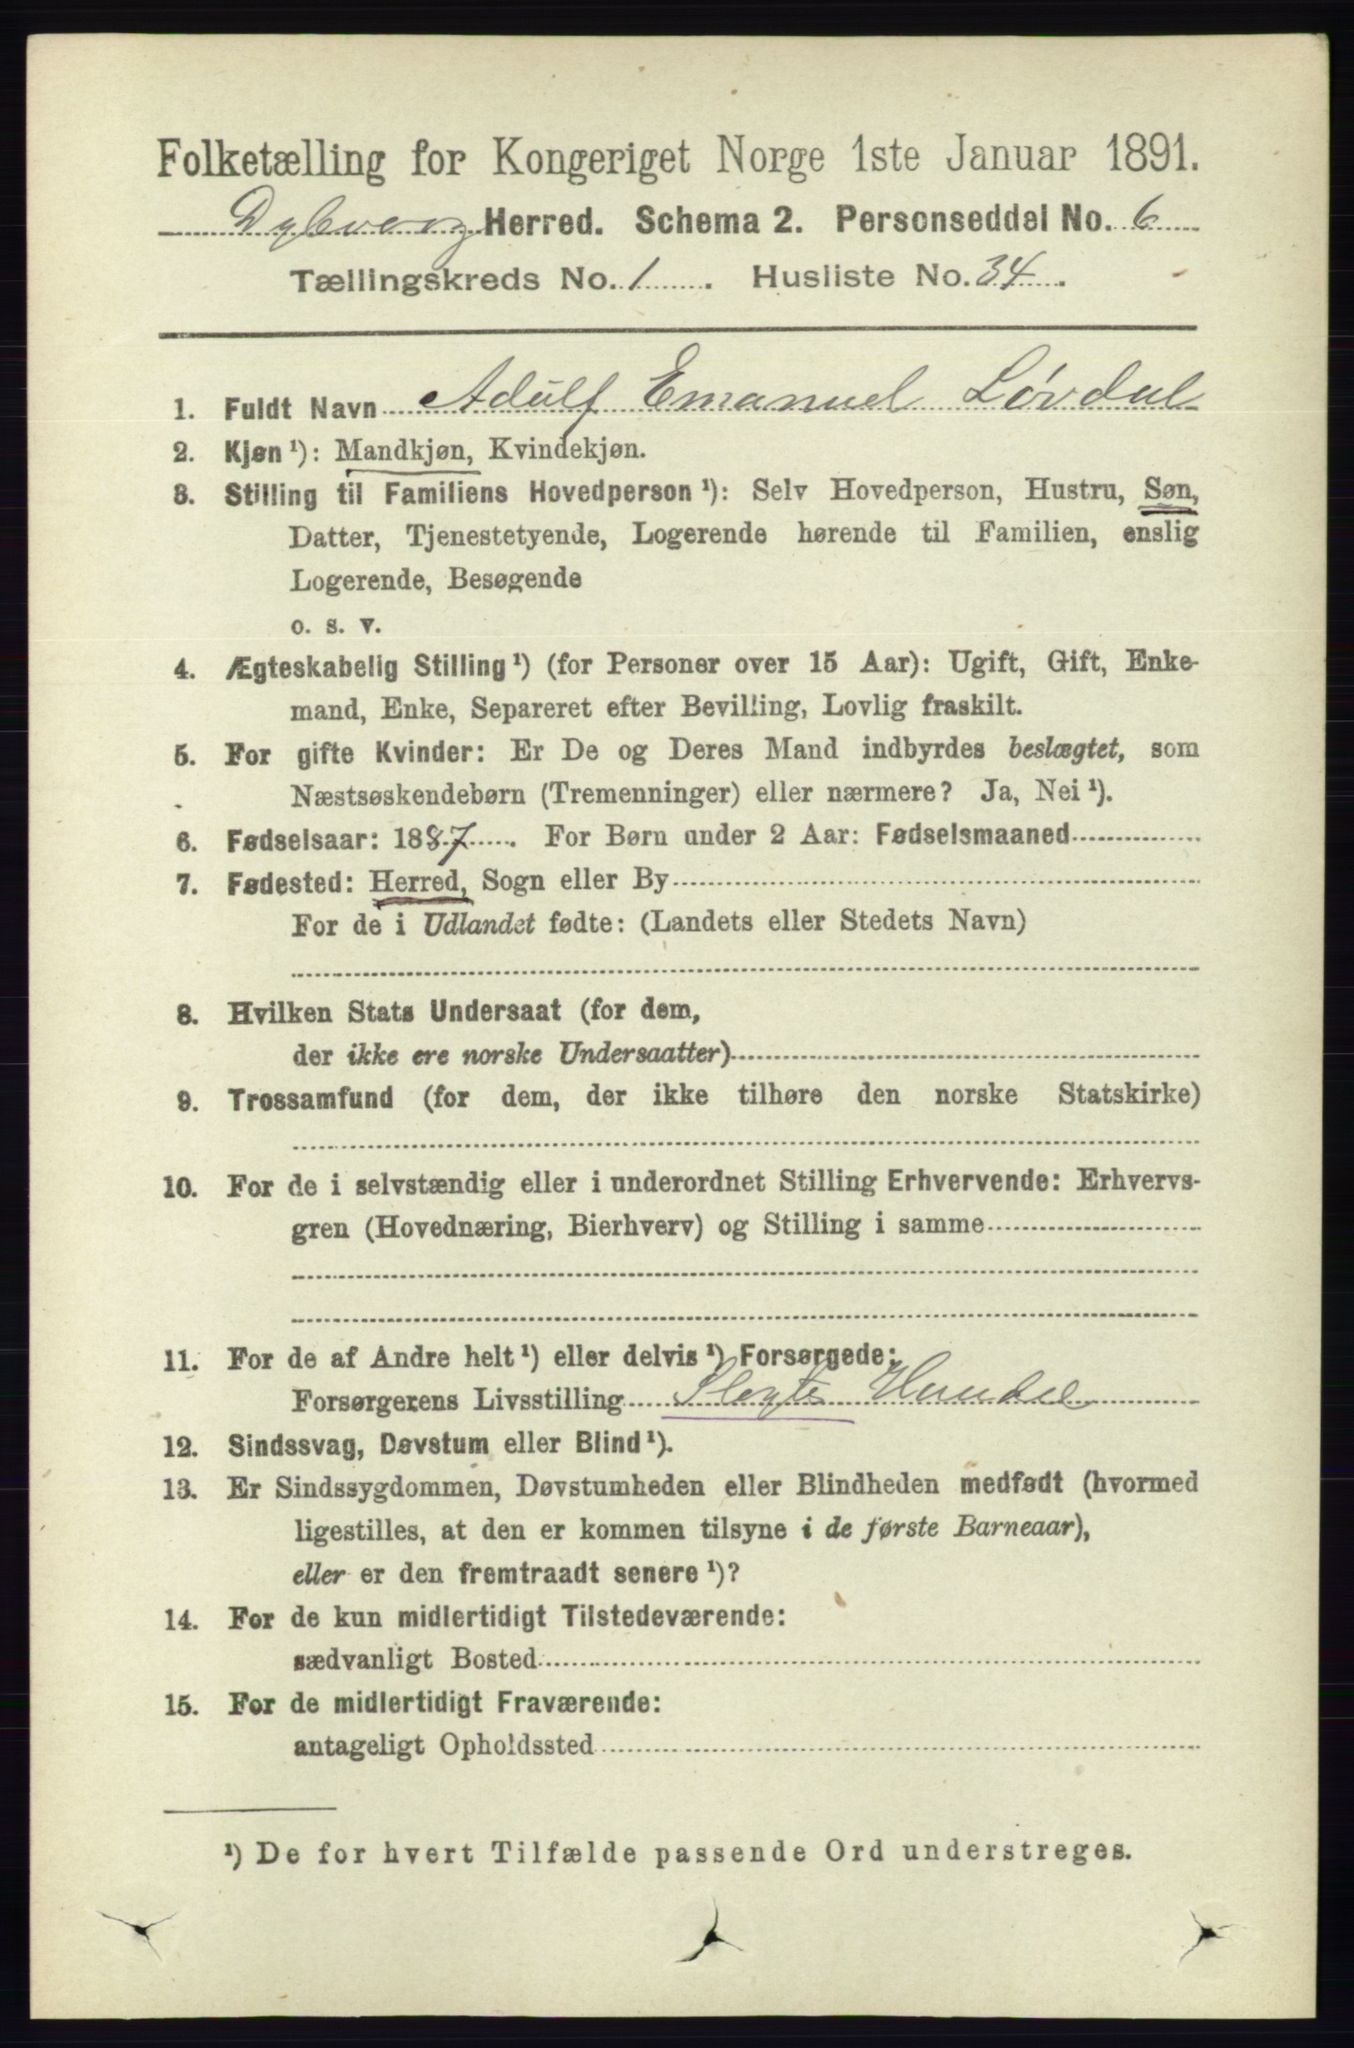 Folketælling for Kongeriget Norge 1ste Januar 1891.
Dybvaag Herred. Schema 2. Personseddel No. 6
Tællingskreds No. 1. Husliste No. 34.
1. Fuldt Navn Adulf Emanuel Løvdal
2. Kjøn ¹): Mandkjøn, Kvindekjøn.
3. Stilling til Familiens Hovedperson ¹): Selv Hovedperson, Hustru, Søn,
Datter, Tjenestetyende, Logerende hørende til Familien, enslig
Logerende, Besøgende
o. s. v.
4. Ægteskabelig Stilling ¹) (for Personer over 15 Aar): Ugift, Gift, Enke-
mand, Enke, Separeret efter Bevilling, Lovlig fraskilt.
5. For gifte Kvinder: Er De og Deres Mand indbyrdes beslægtet, som
Næstsøskendebørn (Tremenninger) eller nærmere? Ja, Nei ¹).
6. Fødselsaar: 1887. For Børn under 2 Aar: Fødselsmaaned
7. Fødested: Herred, Sogn eller By
For de i Udlandet fødte: (Landets eller Stedets Navn)
8. Hvilken Stats Undersaat (for dem,
der ikke ere norske Undersaatter)
9. Trossamfund (for dem, der ikke tilhøre den norske Statskirke)
10. For de i selvstændig eller i underordnet Stilling Erhvervende: Erhvervs-
gren (Hovednæring, Bierhverv) og Stilling i samme
11. For de af Andre helt ¹) eller delvis ¹) Forsørgede:
Forsørgerens Livsstilling
12. Sindssvag, Døvstum eller Blind ¹).
13. Er Sindssygdommen, Døvstumheden eller Blindheden medfødt (hvormed
ligestilles, at den er kommen tilsyne i de første Barneaar),
eller er den fremtraadt senere ¹)?
14. For de kun midlertidigt Tilstedeværende:
sædvanligt Bosted
15. For de midlertidigt Fraværende:
antageligt Opholdssted
¹) De for hvert Tilfælde passende Ord understreges.